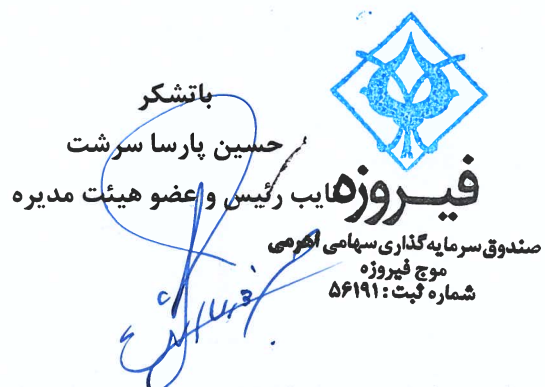 باتشکر
حسین پارسا سرشت
نایب رئیس و عضو هیئت مدیره
فیروزه
صندوق سرمایه گذاری سهامی اهرمی
موج فیروزه
شماره ثبت: ۵۶۱۹۱